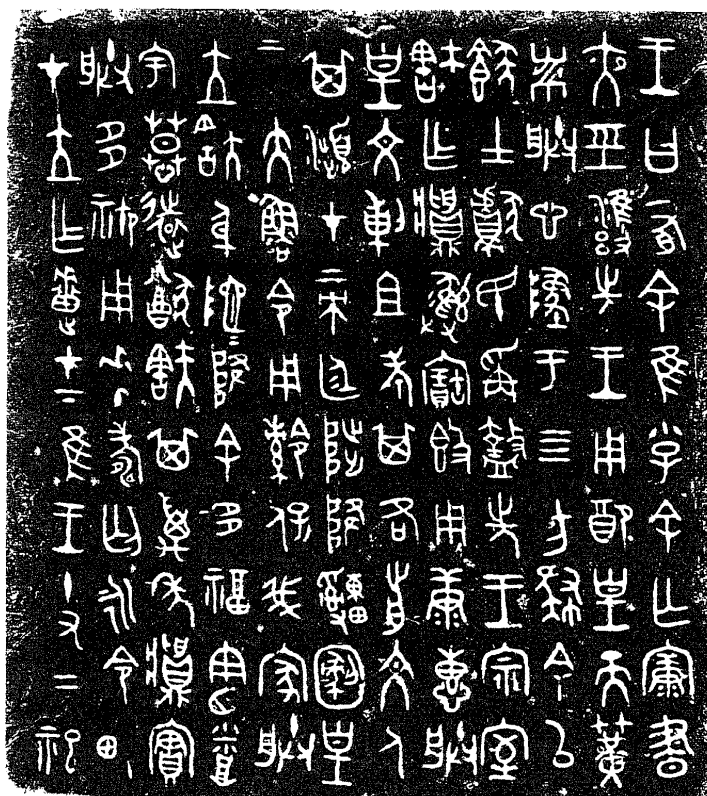 王曰有余隹小子余亡康晝
夜巠雝先王用配皇天簧
黹朕心墜于四方肆余㠯
𩛥士獻民禹盩先王宗室
㝬乍𩰬彝寶簋用康惠朕
皇文剌且考其各前文人
其瀕才帝廷陟降申圝皇
帝大魯令用𩛥保我家朕
立㝬身阤阤降余多福憲烝
宇慕遠猷㝬其萬年𩰬實
朕多禦用𠦪壽匄永令畯
才立乍疐才下隹王十又二祀